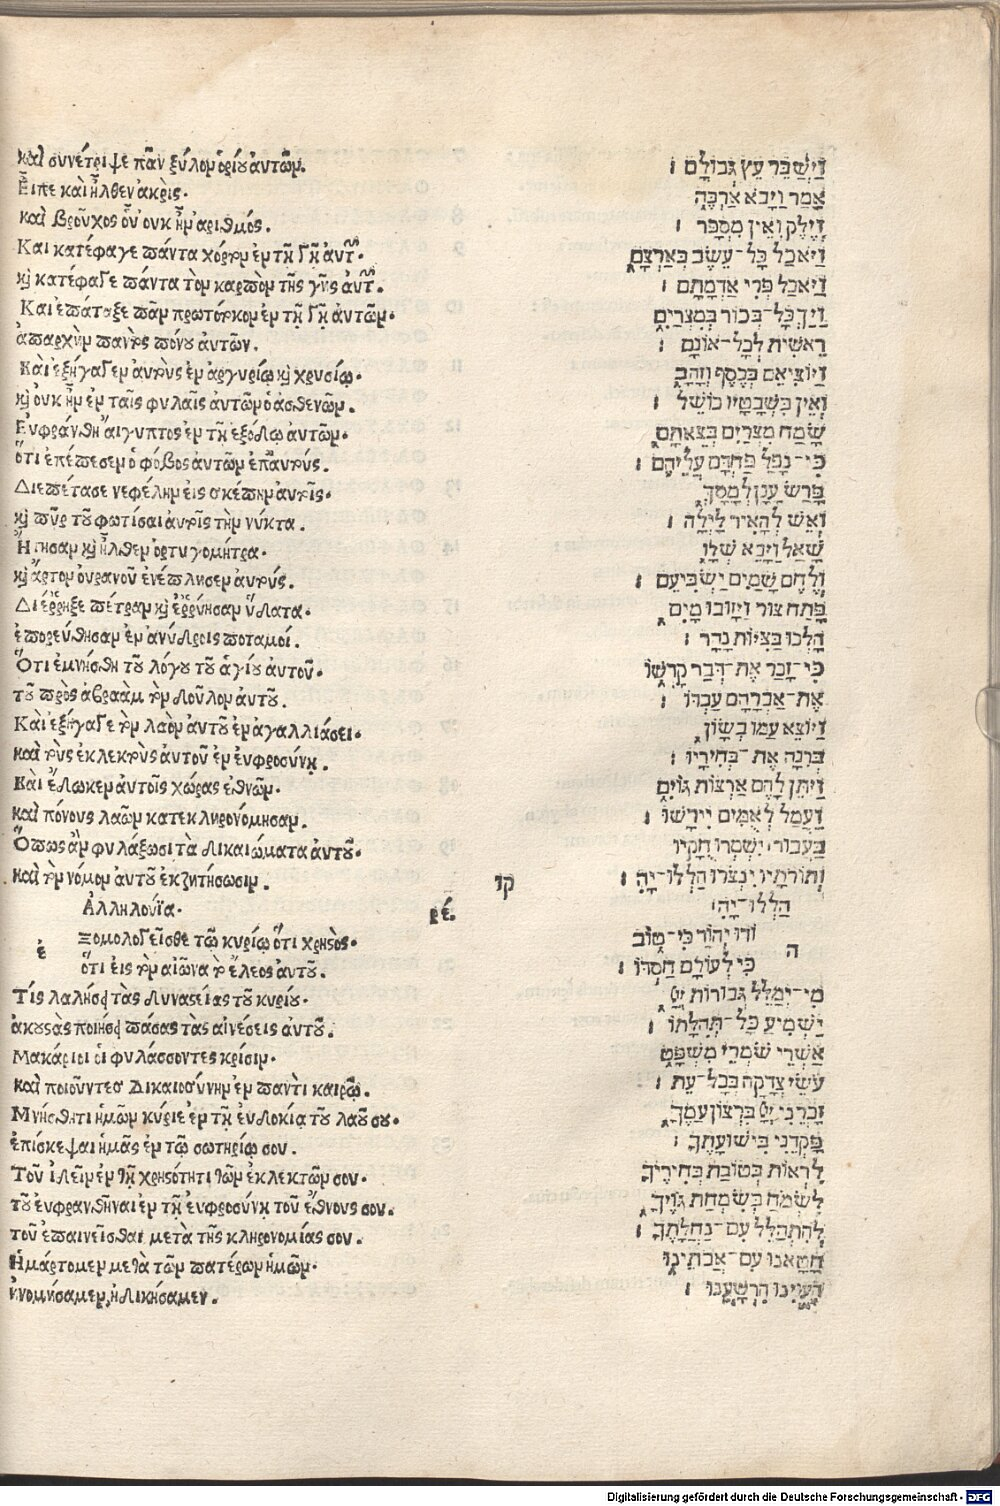 καὶ συνέτριψε πᾶν ξύλον ὁρίου αὐτῶν.
Εἶπε καὶ ἦλθεν ἀκρὶς.
καὶ βροῦχος οὗ οὐκ ἦν ἀριθμός.
Και κατέφαγε πάντα χόρτον ἐν τῇ γῇ αὐτῶν.
κὶ κατέφαγε πάντα τὸν καρπὸν τῆς γῆς αὐτῶν.
Και ἐπάταξε παν πρωτότοκον ἐν τῇ γῇ αὐτῶν.
ἀπαρχὴν παντὸς πόνου αὐτων.
Καὶ ἐξήγαγεν αὐτοὺς ἐν ἀργυρίῳ κὶ χρυσίῳ.
κὶ οὐκ ἦν ἐν ταῖς φυλαῖς αὐτῶν ὁ ἀσθενῶν.
Εὐφράνθη ἄιγυπτος ἐν τῇ ἐξόδῳ αὐτῶν.
ὅτι ἐπέπεσεν ὁ φόβος αὐτῶν ἐπ᾽ αὐτούς.
Διεπέτασε νεφέλην εἰς σκέπην αὐτοῖς.
κὶ πῦρ τοῦ φωτίσαι αὐτοῖς τὴν νύκτα.
Ἤτησαν κὶ ἦλθεν ὀρτυγομήτρα.
κὶ ἄρτον οὐρανοῦ ἐνέπλησεν αὐτούς.
Διέῤῥηξε πέτραν κὶ ἐῤῥύησαν ὕδατα.
ἐπορεύθησαν ἐν ἀνύδροις ποταμοί.
Ὅτι ἐμνήσθη τοῦ λόγου τοῦ ἁγίου ἀυτοῦ.
τοῦ πρὸς ἀβραὰμ τὸν δοῦλον ἀυτοῦ.
Καὶ ἐξήγαγε τὸν λαὸν ἀυτοῦ ἐν ἀγαλλιάσει.
καὶ τοὺς ἐκλεκτοὺς ἀυτοῦ ἐν ἐυφροσύνῃ.
Καὶ ἔδωκεν ἀυτοῖς χώρας ἐθνῶν.
καὶ πόνους λαῶν κατεκληρονόμησαν.
Ὅπως ἂν φυλάξωσι τὰ δικαιώματα ἀυτοῦ.
καὶ τὸν νόμον ἀυτοῦ ἐκζητήσωσιν.
Ἀλληλούϊα.
ρέ.
ἐ
Ξομολογεῖσθε τῷ κυρίῳ ὅτι χρηστὸς.
ὅτι εἰς τὸν αἰῶνα τὸ ἔλεος ἀυτοῦ.
Τίς λαλήσει τὰς δυναστείας τοῦ κυρίου.
ἀκουστὰς ποιήσει πάσας τὰς αἰνέσεις ἀυτοῦ.
Μακάριοι ὁι φυλάσσοντες κρίσιν.
καὶ ποιοῦντες δικαιοσύνην ἐν παντὶ καιρῷ.
Μνήσθητι ἡμῶν κύριε ἐν τῇ ἐυδοκίᾳ τοῦ λαοῦ σου.
ἐπίσκεψαι ἡμᾶς ἐν τῷ σωτηρίῳ σου.
Τοῦ ἰδεῖν ἐν τῇ χρηστότητι τῶν ἐκλεκτῶν σου.
τοῦ ἐυφρανθῆναι ἐν τῇ ἐυφροσύνῃ τοῦ ἔθνους σου.
τοῦ ἐπαινεῖσθαι μετὰ τῆς κληρονομίας σου.
Ἡμάρτομεν μετὰ τῶν πατέρων ἡμῶν.
ἠνομήσαμεν, ἠδικήσαμεν.
וַיְשַׁבֵּר עֵץ גְּבוּלָם׃
אָמַר וַיָּבֹא אַרְבֶּה
וְיֶלֶק וְאֵין מִסְפָּר׃
וַיֹּאכַל כָּל־עֵשֶׂב בְּאַרְצָם
וַיֹּאכַל פְּרִי אַדְמָתָם׃
וַיַּךְ כָּל־בְּכוֹר בְּמִצְרַיִם
רֵאשִׁית לְכָל־אוֹנָם׃
וַיּוֹצִיאֵם בְּכֶסֶף וְזָהָב
וְאֵין בִּשְׁבָטָיו כּוֹשֵׁל׃
שָׂמַח מִצְרַיִם בְּצֵאתָם
כִּי־נָפַל פַּחְדָּם עֲלֵיהֶם׃
פָּרַשׂ עָנָן לְמָסָךְ
וְאֵשׁ לְהָאִיר לָיְלָה׃
שָׁאַל וַיָּבֵא שְׂלָו
וְלֶחֶם שָׁמַיִם יַשְׂבִּיעֵם׃
פָּתַח צוּר וַיָּזוּבוּ מָיִם
הָלְכוּ בַּצִּיּוֹת נָהָר׃
כִּי־זָכַר אֶת־דְּבַר קָדְשׁוֹ
אֶת־אַבְרָהָם עַבְדּוֹ׃
וַיּוֹצִא עַמּוֹ בְשָׂשׂוֹן
בְּרִנָּה אֶת־בְּחִירָיו׃
וַיִּתֵּן לָהֶם אַרְצוֹת גּוֹיִם
וַעֲמַל לְאֻמִּים יִירָשׁוּ׃
בַּעֲבוּר יִשְׁמְרוּ חֻקָּיו
וְתוֹרֹתָיו יִנְצֹרוּ הַלְלוּ־יָהּ׃
קו
הַלְלוּ־יָהּ
ה
וֹדוּ לַיהוָה כִּי־טוֹב
כִּי לְעוֹלָם חַסְדּוֹ׃
מִי־יְמַלֵּל גְּבוּרוֹת יְיָ
יַשְׁמִיעַ כָּל־תְּהִלָּתוֹ׃
אַשְׁרֵי שֹׁמְרֵי מִשְׁפָּט
עֹשֵׂי צְדָקָה בְכָל־עֵת׃
זָכְרֵנִי יְיָ בִּרְצוֹן עַמֶּךָ
פָּקְדֵנִי בִּישׁוּעָתֶךָ׃
לִרְאוֹת בְּטוֹבַת בְּחִירֶיךָ
לִשְׂמֹחַ בְּשִׂמְחַת גּוֹיֶךָ
לְהִתְהַלֵּל עִם־נַחֲלָתֶךָ׃
חָטָאנוּ עִם־אֲבֹתֵינוּ
הֶעֱוִינוּ הִרְשָׁעְנוּ׃
Digitalisierung gefördert durch die Deutsche Forschungsgemeinschaft - DFG